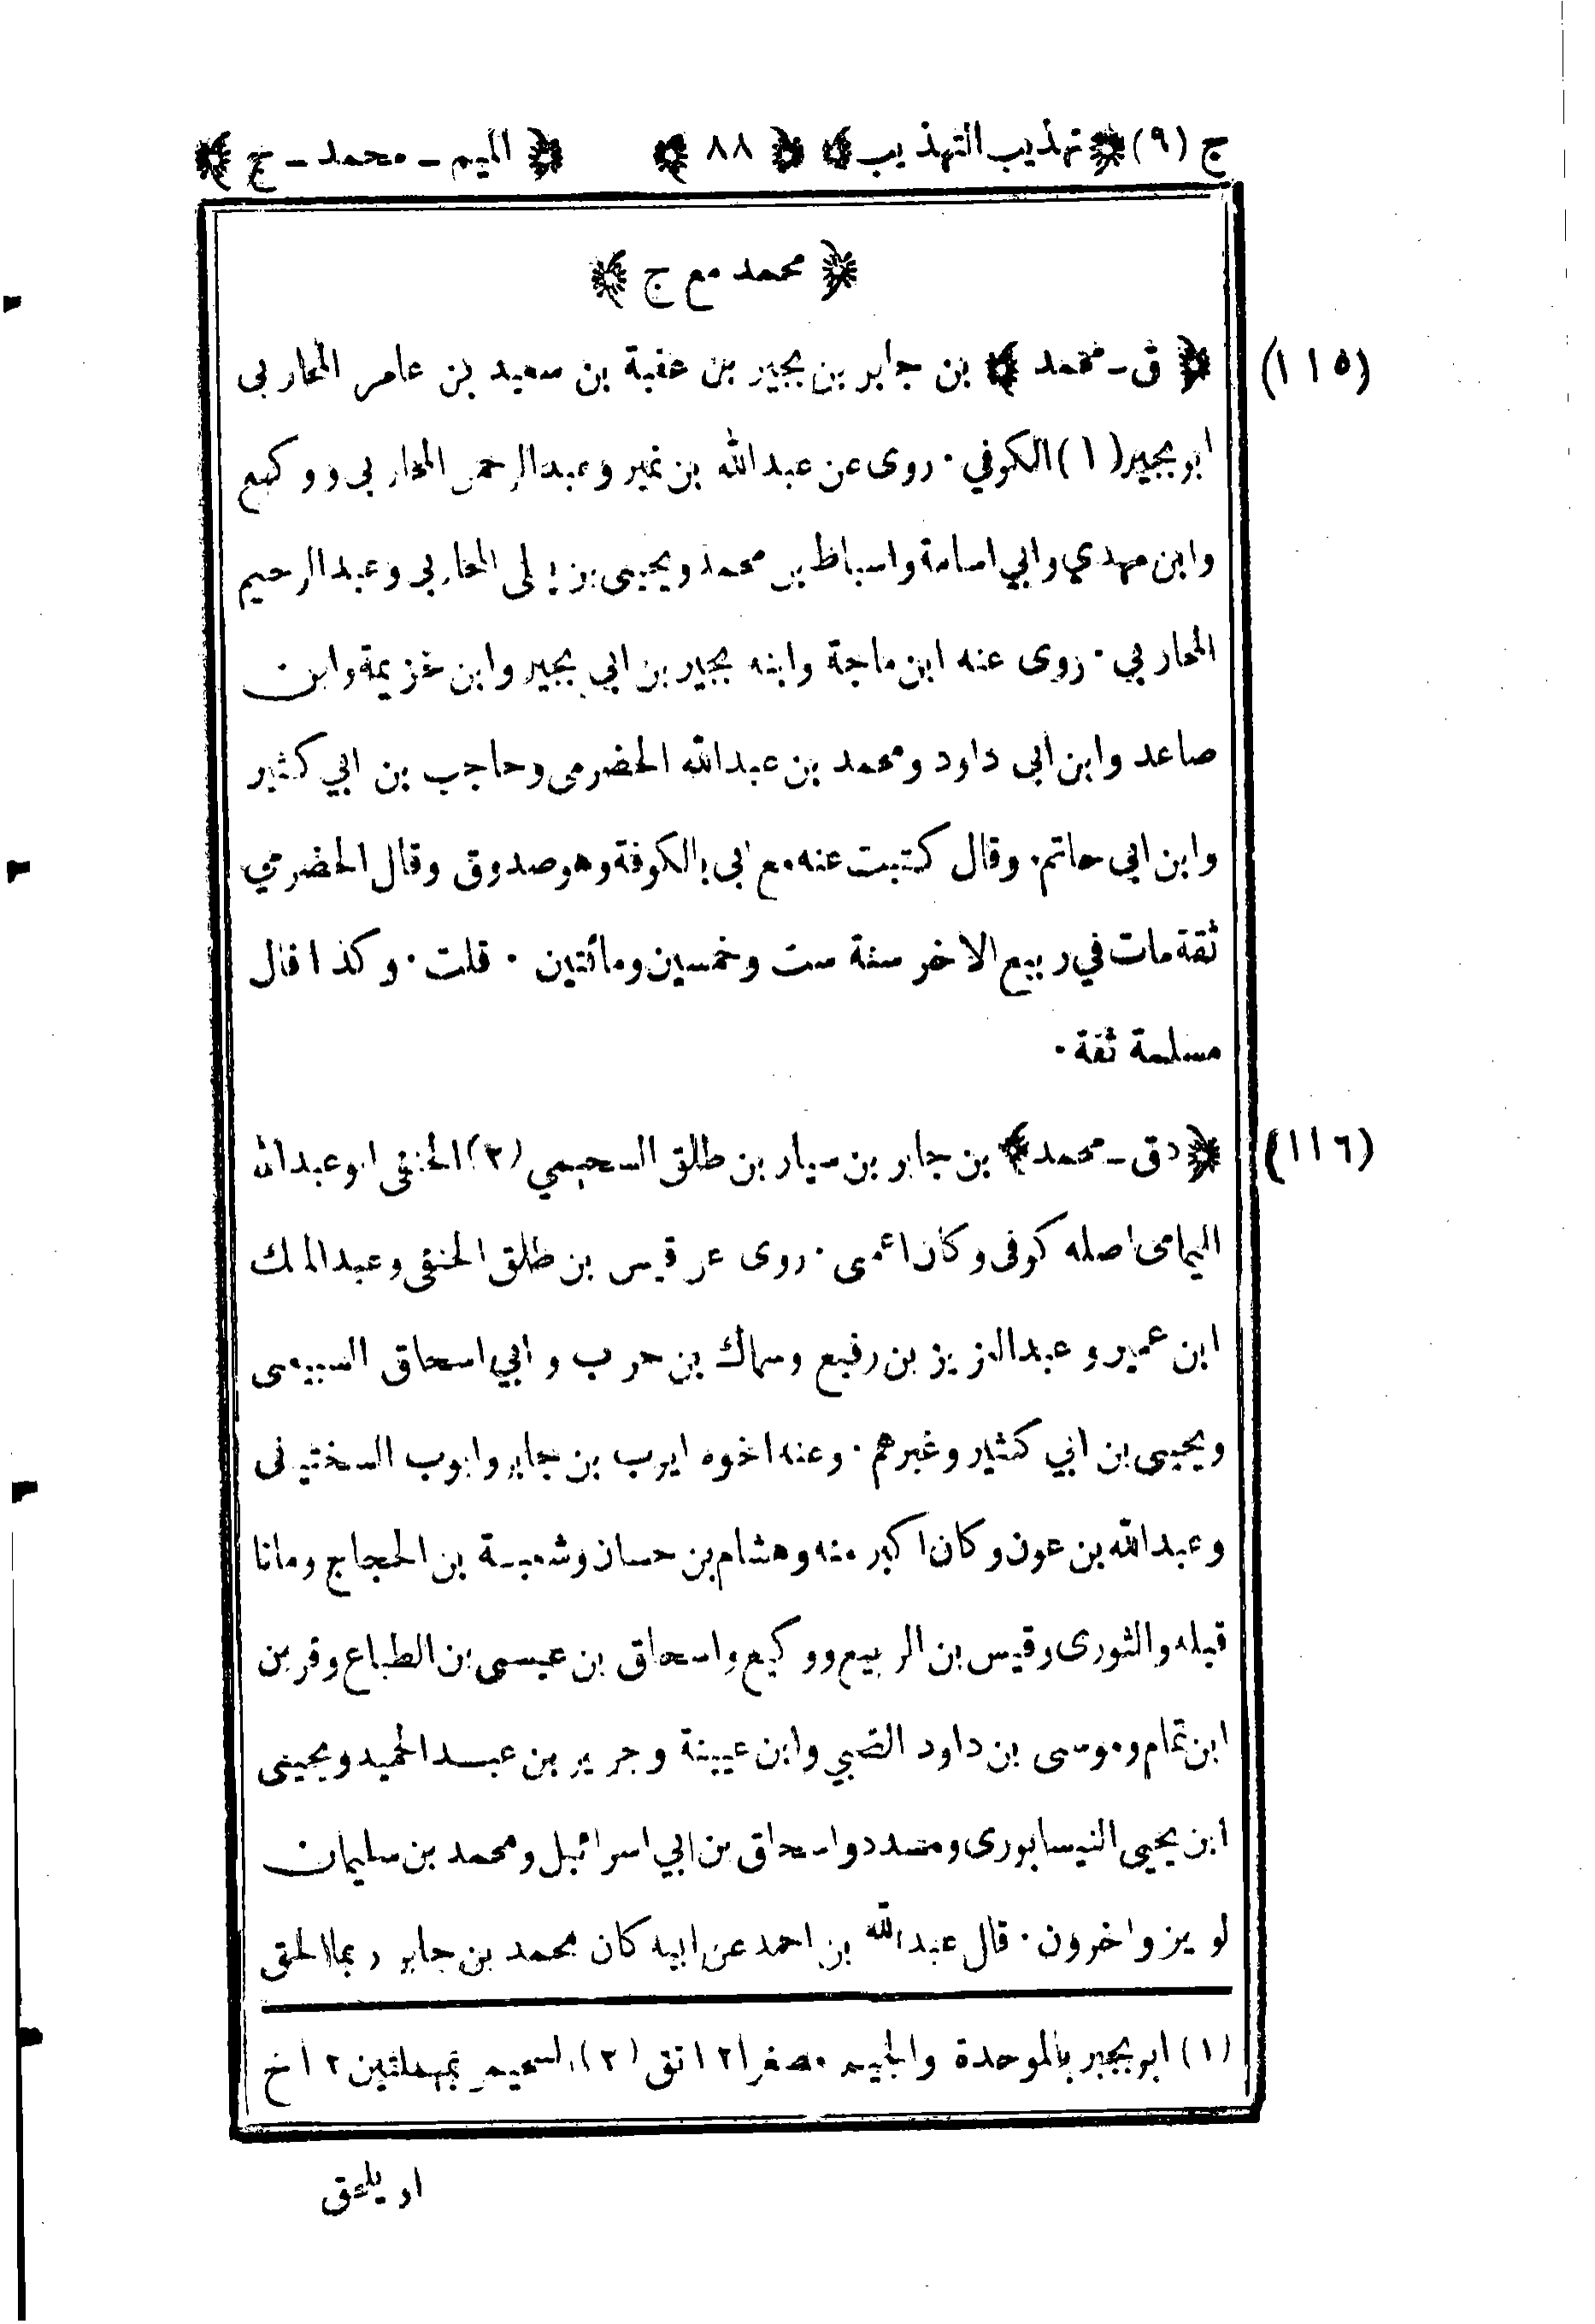 ج (٩) ﴿ تهذيب التهذيب ﴾ ﴿ ٨٨ ﴾ ﴿ الميم - محمد - ج ﴾
﴿ محمد مع ج ﴾
(١١٥) ﴿ ق - محمد ﴾ بن جابر بن بجير بن عقبة بن سعيد بن عامر المحاربى
ابو بجير (١) الكوفي ٠ روى عن عبد الله بن نمير وعبد الرحمن المحاربي و وكيع
وابن مهدي وابي اسامة واسباط بن محمد ويحيى بن يعلى المحاربي وعبد الرحيم
المحاربي ٠ روى عنه ابن ماجة وابنه بجير بن ابي بجير وابن خزيمة وابن
صاعد وابن ابى داود ومحمد بن عبد الله الحضرمى وحاجب بن ابي كثير
وابن ابى حاتم ٠ وقال كتبت عنه مع ابى بالكوفة وهو صدوق وقال الحضرمي
ثقة مات في ربيع الاخر سنة ست وخمسين ومائتين ٠ قلت ٠ وكذا قال
مسلمة ثقة ٠
(١١٦) ﴿ دق - محمد ﴾ بن جابر بن سيار بن طالق السحيمي (٢) الحنفى ابو عبد الله
اليمامى اصله كوفى وكان اعمى ٠ روى عن قيس بن طلق الحنفى وعبد الملك
ابن عمير وعبد العزيز بن رفيع وسماك بن حرب وابي اسحاق السبيعى
ويحيى بن ابي كثير وغيرهم ٠ وعنه اخوه ايوب بن جابر وايوب السختيانى
وعبد الله بن عون وكان اكبر منه وهشام بن حسان وشعبة بن الحجاج وماتا
قبله والثورى وقيس بن الربيع ووكيع واسحاق بن عيسى بن الطباع وقر بن
ابن تمام وموسى بن داود الضبي وابن عيينة وجرير بن عبد الحميد ويحيى
ابن يحيى النيسابورى ومسدد واسحاق بن ابي اسرائيل ومحمد بن سليمان
لوين واخرون ٠ قال عبد الله بن احمد عن ابيه كان محمد بن جابر ربما الحق
(١) ابو بجير بالموحدة والجيم مصغرا ١٢ تق (٢) السحيمى بمهملتين ١٢ خ
او يلحق